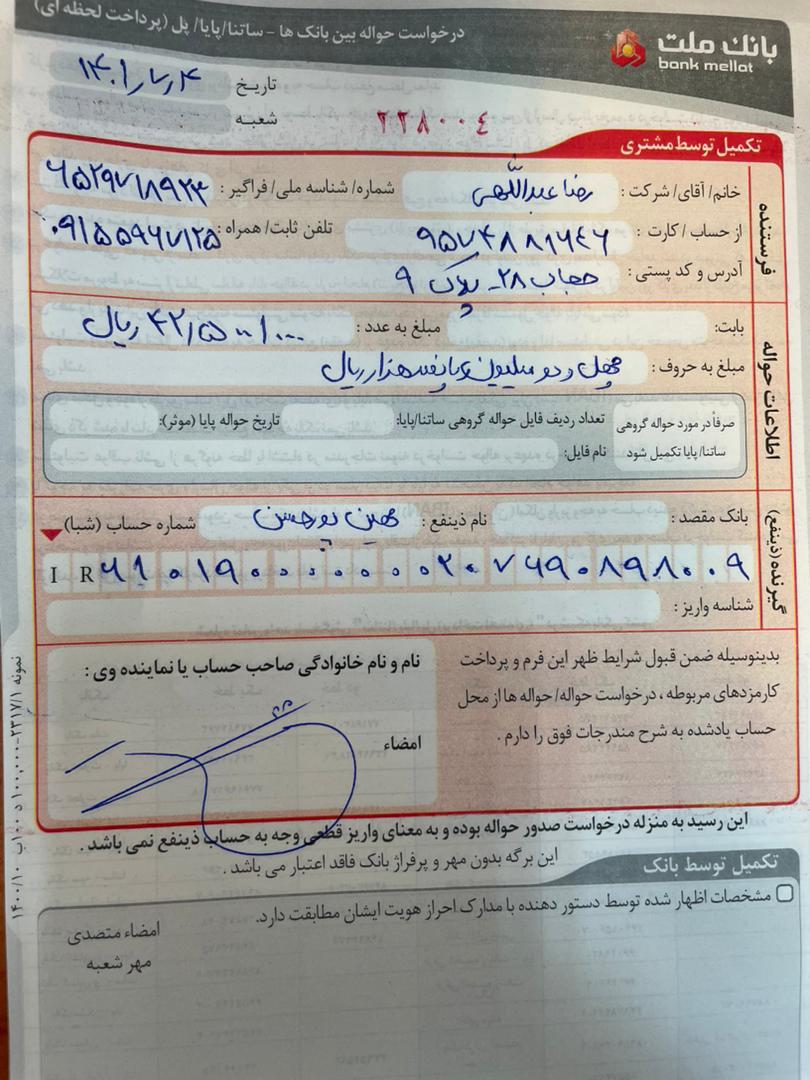 درخواست حواله بین بانک ها - ساتنا/پایا/ پل (پرداخت لحظه ای)
بانک ملت
bank mellat
تاریخ ۱۴۰۱/۷/۴
شعبه
۲۲۸۰۰۴
تکمیل توسط مشتری
فرستنده
خانم/ آقای/ شرکت : رضا عبداللهی شماره/ شناسه ملی/ فراگیر : ۶۵۲۹۷۱۸۹۲۳
از حساب / کارت : ۹۵۷۴۸۸۱۶۴۶ تلفن ثابت/ همراه : ۰۹۱۵۵۹۶۷۱۲۵
آدرس و کد پستی : حجاب ۲۸ - پلاک ۹
اطلاعات حواله
بابت: مبلغ به عدد : ۴۲/۵۰۰/۰۰۰ ریال
مبلغ به حروف : چهل و دو میلیون و پانصد هزار ریال
صرفاً در مورد حواله گروهی ساتنا/ پایا تکمیل شود
تعداد ردیف فایل حواله گروهی ساتنا/پایا: تاریخ حواله پایا (موثر):
نام فایل:
گیرنده (ذینفع)
بانک مقصد : نام ذینفع : مهین پورحسن شماره حساب (شبا)
I R ۶۱۰۱۹۰۰۰۰۰۰۰۰۲۰۷۶۹۰۸۹۸۰۰۹
شناسه واریز :
بدینوسیله ضمن قبول شرایط ظهر این فرم و پرداخت
کارمزدهای مربوطه ، درخواست حواله/ حواله ها از محل
حساب یادشده به شرح مندرجات فوق را دارم .
نام و نام خانوادگی صاحب حساب یا نماینده وی :
امضاء
این رسید به منزله درخواست صدور حواله بوده و به معنای واریز قطعی وجه به حساب ذینفع نمی باشد .
این برگه بدون مهر و پرفراژ بانک فاقد اعتبار می باشد .
تکمیل توسط بانک
مشخصات اظهار شده توسط دستور دهنده با مدارک احراز هویت ایشان مطابقت دارد.
امضاء متصدی
مهر شعبه
نمونه ۲۳۱۷/۱-۱۰۰,۰۰۰ د ۱۰۰ب ۱۴۰۰/۱۰